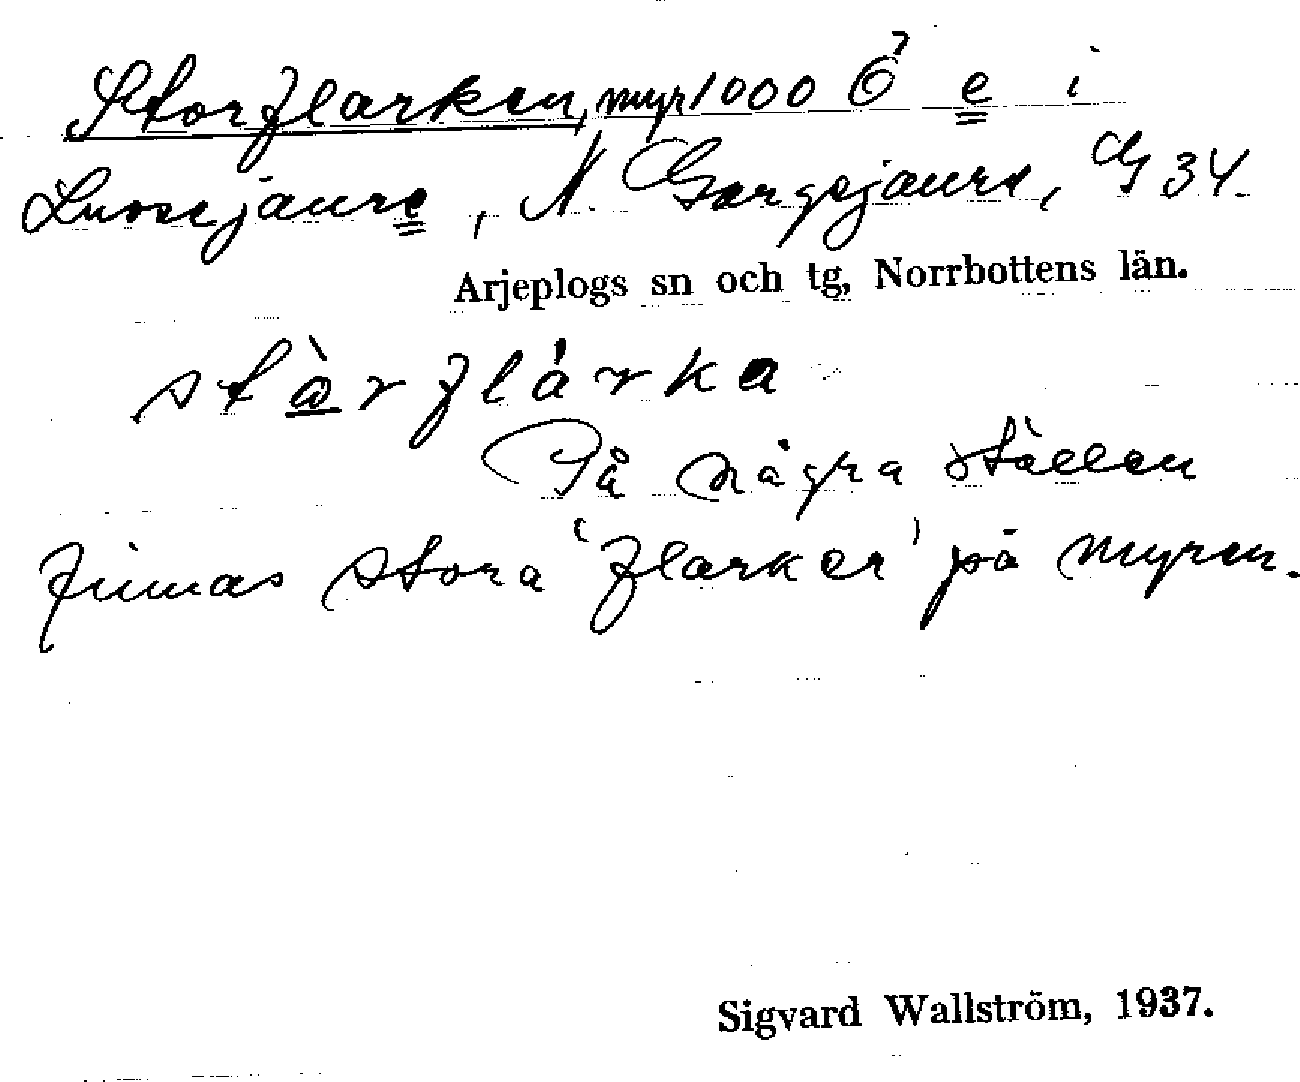 Storflarken, myr 1000 Ö e i
Luossejaure, N. Gargejaure, G 34.
Arjeplogs sn och tg, Norrbottens län.
stàrflárka
På några ställen
finnas stora 'flarker' på myren.
Sigvard Wallström, 1937.